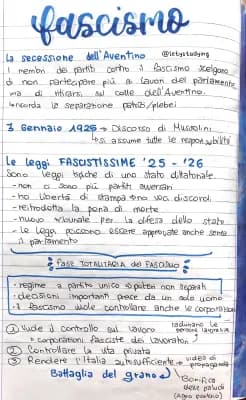 fascismo
La secessione dell'Aventino @letystudying
I membri dei partiti contro il fascismo scelgono
di non partecipare più ai lavori del parlamento
ma di ritirarsi sul colle dell'Aventino.
↳ricorda la separazione patrizi/plebei
3 Gennaio 1925 → Discorso di Mussolini
↳si assume tutte le responsabilità
Le leggi FASCISTISSIME '25 - '26
Sono leggi tipiche di uno stato dittatoriale.
-non ci sono più partiti avversari
-no libertà di stampa e no voci discordi
-reitrodotta la pena di morte
-nuovo tribunale per la difesa dello stato
-le leggi possono essere approvate anche senza
il parlamento
FASE TOTALITARIA del FASCISMO
-regime a partito unico e poteri non separati
-decisioni importanti prese da un solo uomo
-il fascismo vuole controllare anche le corporazioni
① Vuole il controllo sul lavoro → radunano le persone lavorative
↳ corporazioni fasciste dei lavoratori
② Controllare la vita privata
③ Rendere l'Italia autosufficiente → video di propaganda
Battaglia del grano
↳ Bonifica
delle paludi
(Agro pontino)